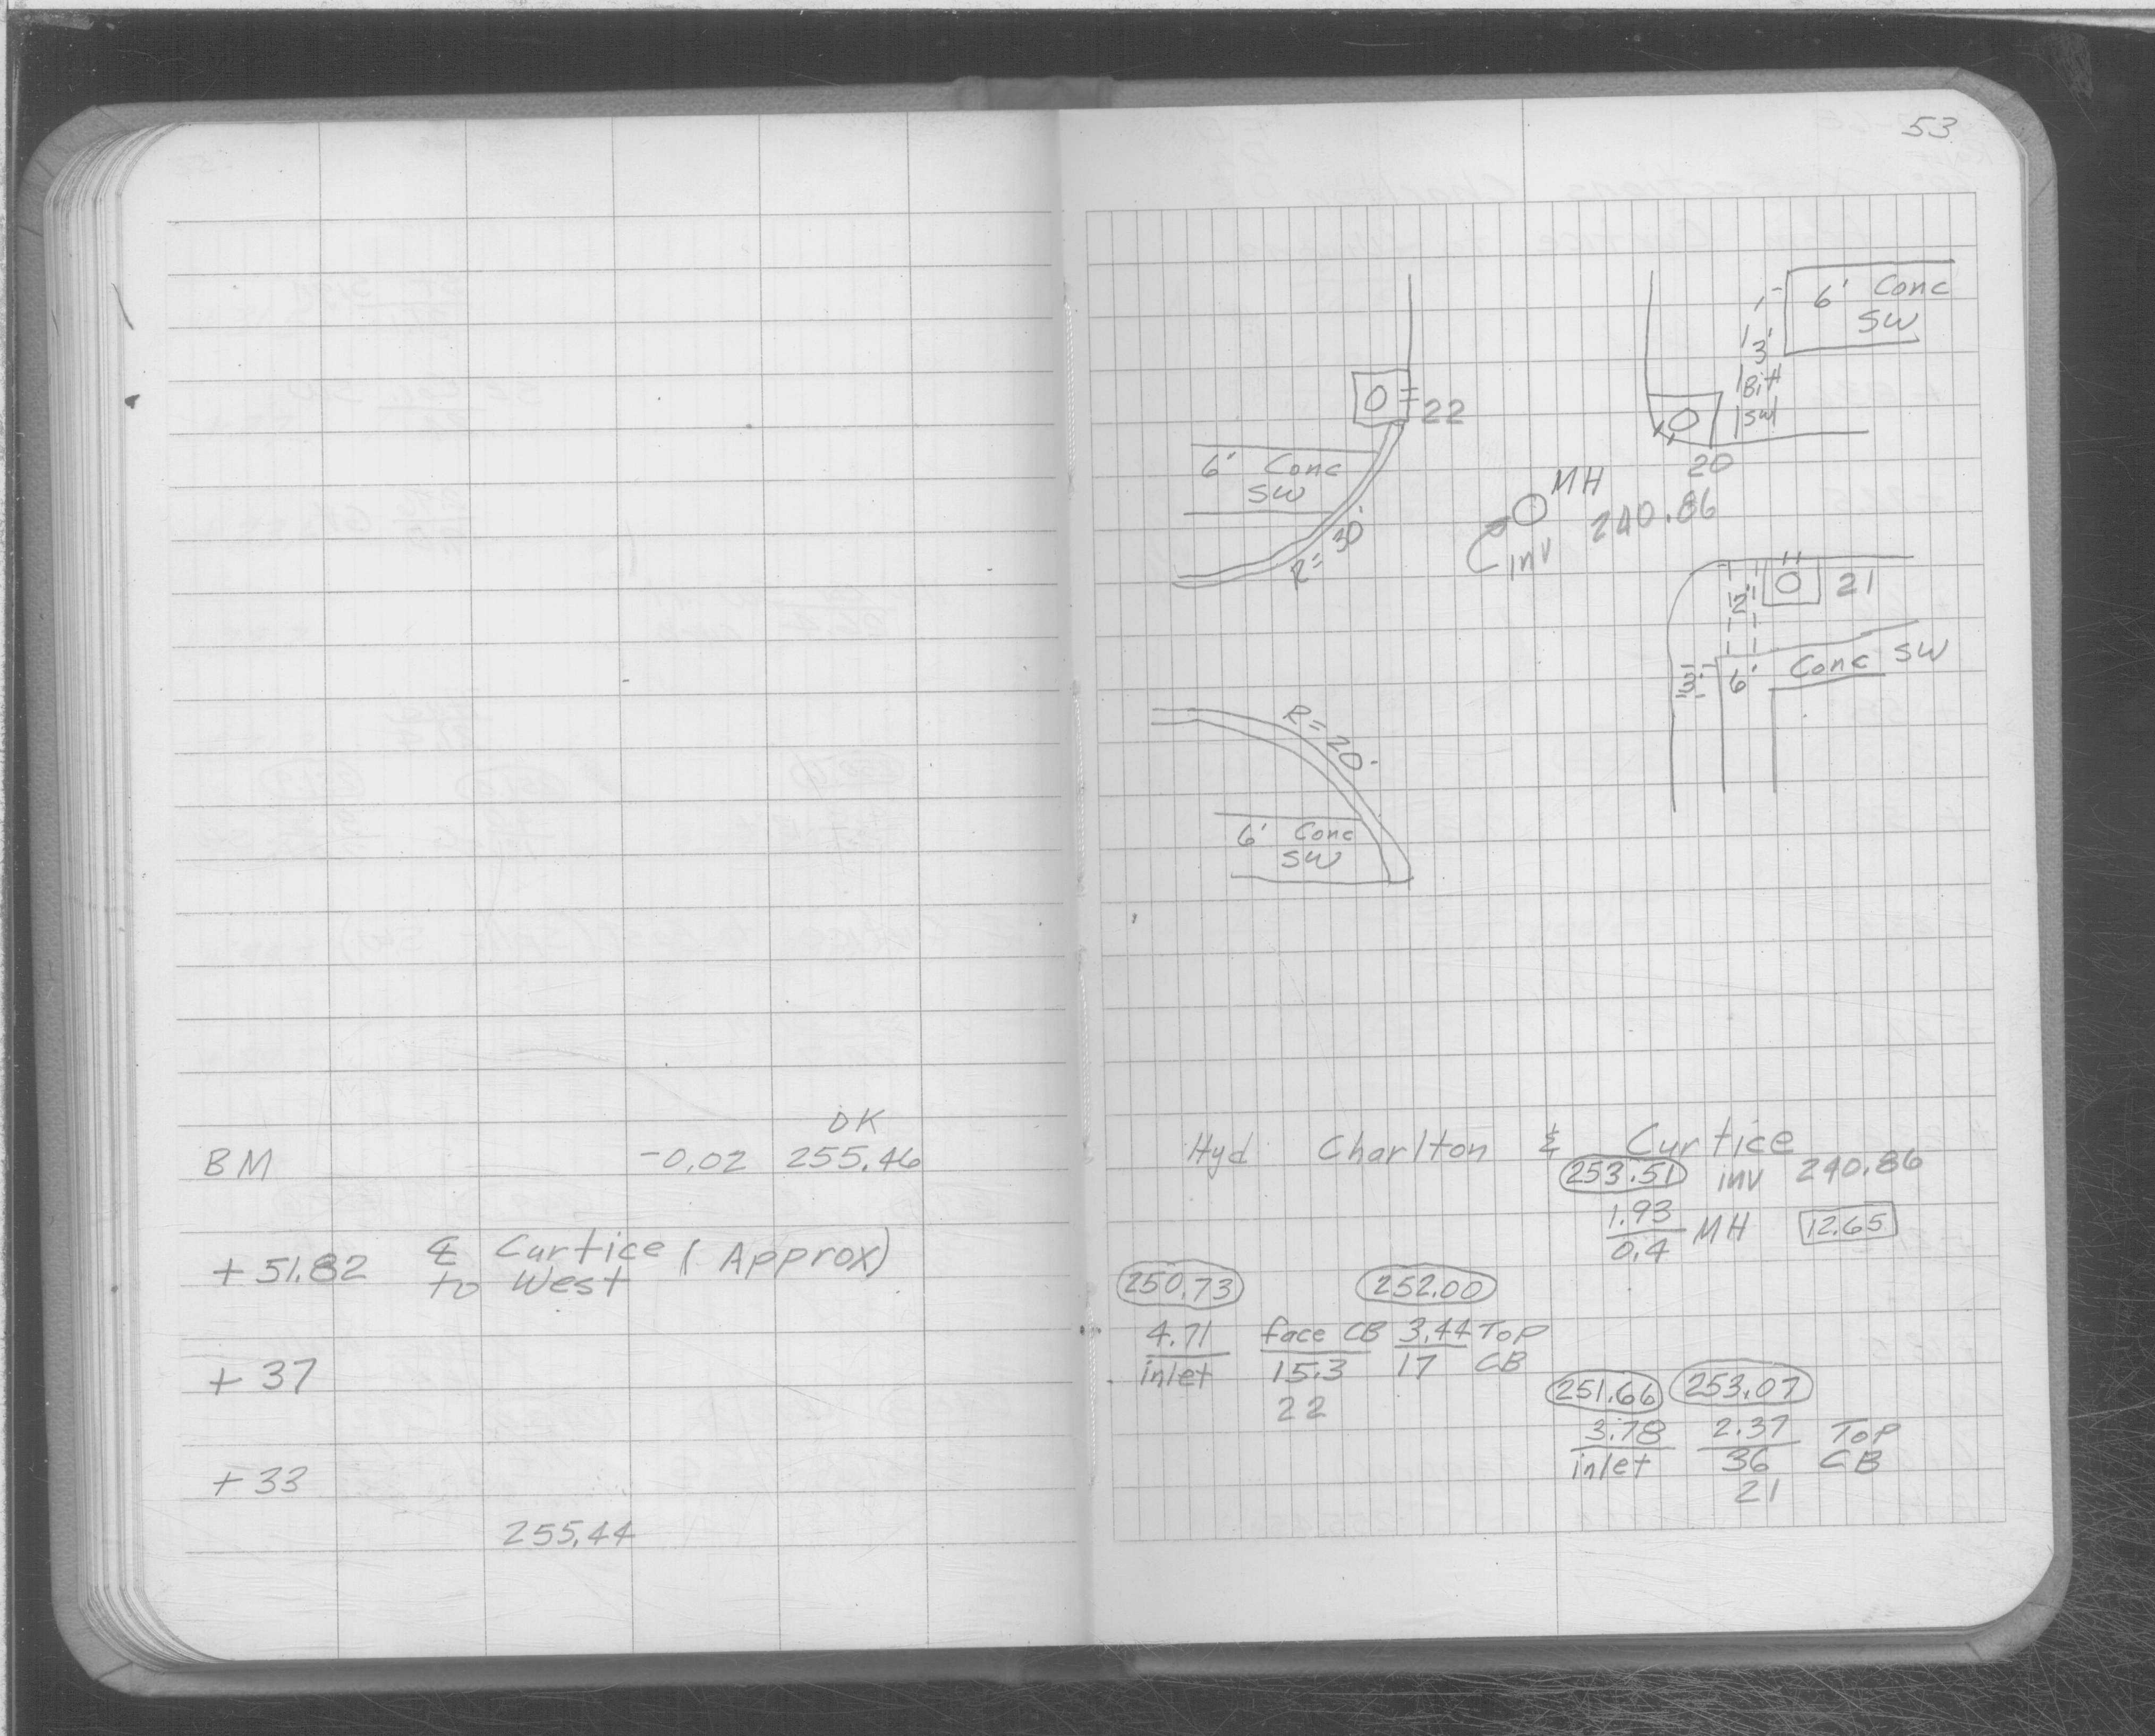 53
6' Conc
SW
3'
Bit
SW
22
20
6' Conc
SW
R= 30'
MH
inv 240.86
21
2'
3' 6' Conc SW
R= 20'
6' Conc
SW
OK
BM -0.02 255.46
+51.82 ℄ Curtice (Approx)
to West
+37
+33
255.44
Hyd Charlton & Curtice
253.51 inv 240.86
1.93 MH 12.65
0.4
250.73 252.00
4.71 face CB 3.44 Top
inlet 15.3 17 CB
22
251.66 253.07
3.78 2.37 Top
inlet 36 CB
21